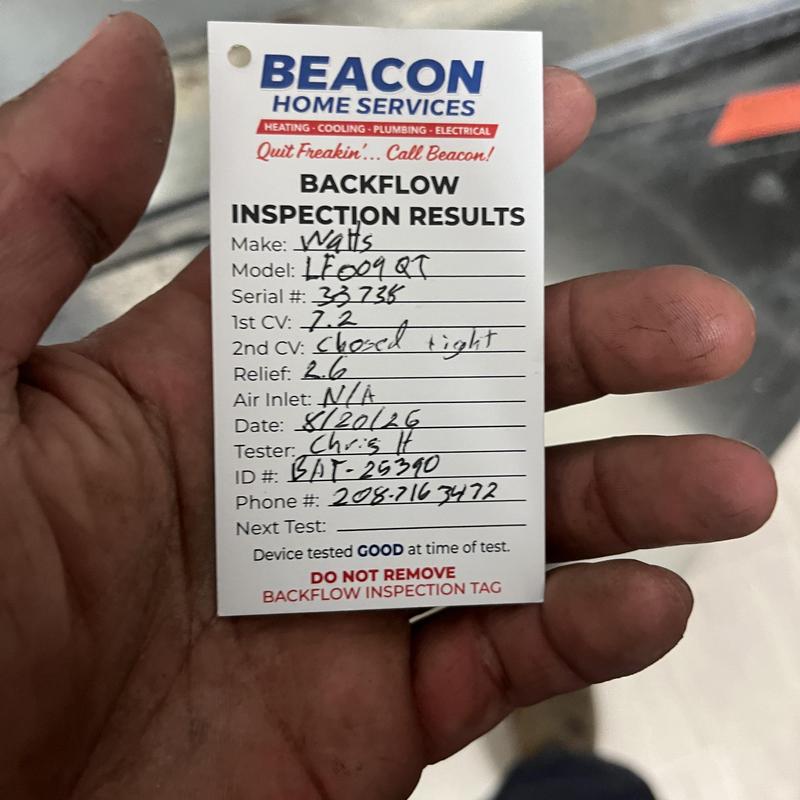 BEACON
HOME SERVICES
HEATING - COOLING - PLUMBING - ELECTRICAL
Quit Freakin'... Call Beacon!
BACKFLOW
INSPECTION RESULTS
Make: Watts
Model: LF009 QT
Serial #: 33738
1st CV: 7.2
2nd CV: Closed tight
Relief: 2.6
Air Inlet: N/A
Date: 8/20/26
Tester: Chris H
ID #: BAT-25390
Phone #: 208-716 3472
Next Test:
Device tested GOOD at time of test.
DO NOT REMOVE
BACKFLOW INSPECTION TAG